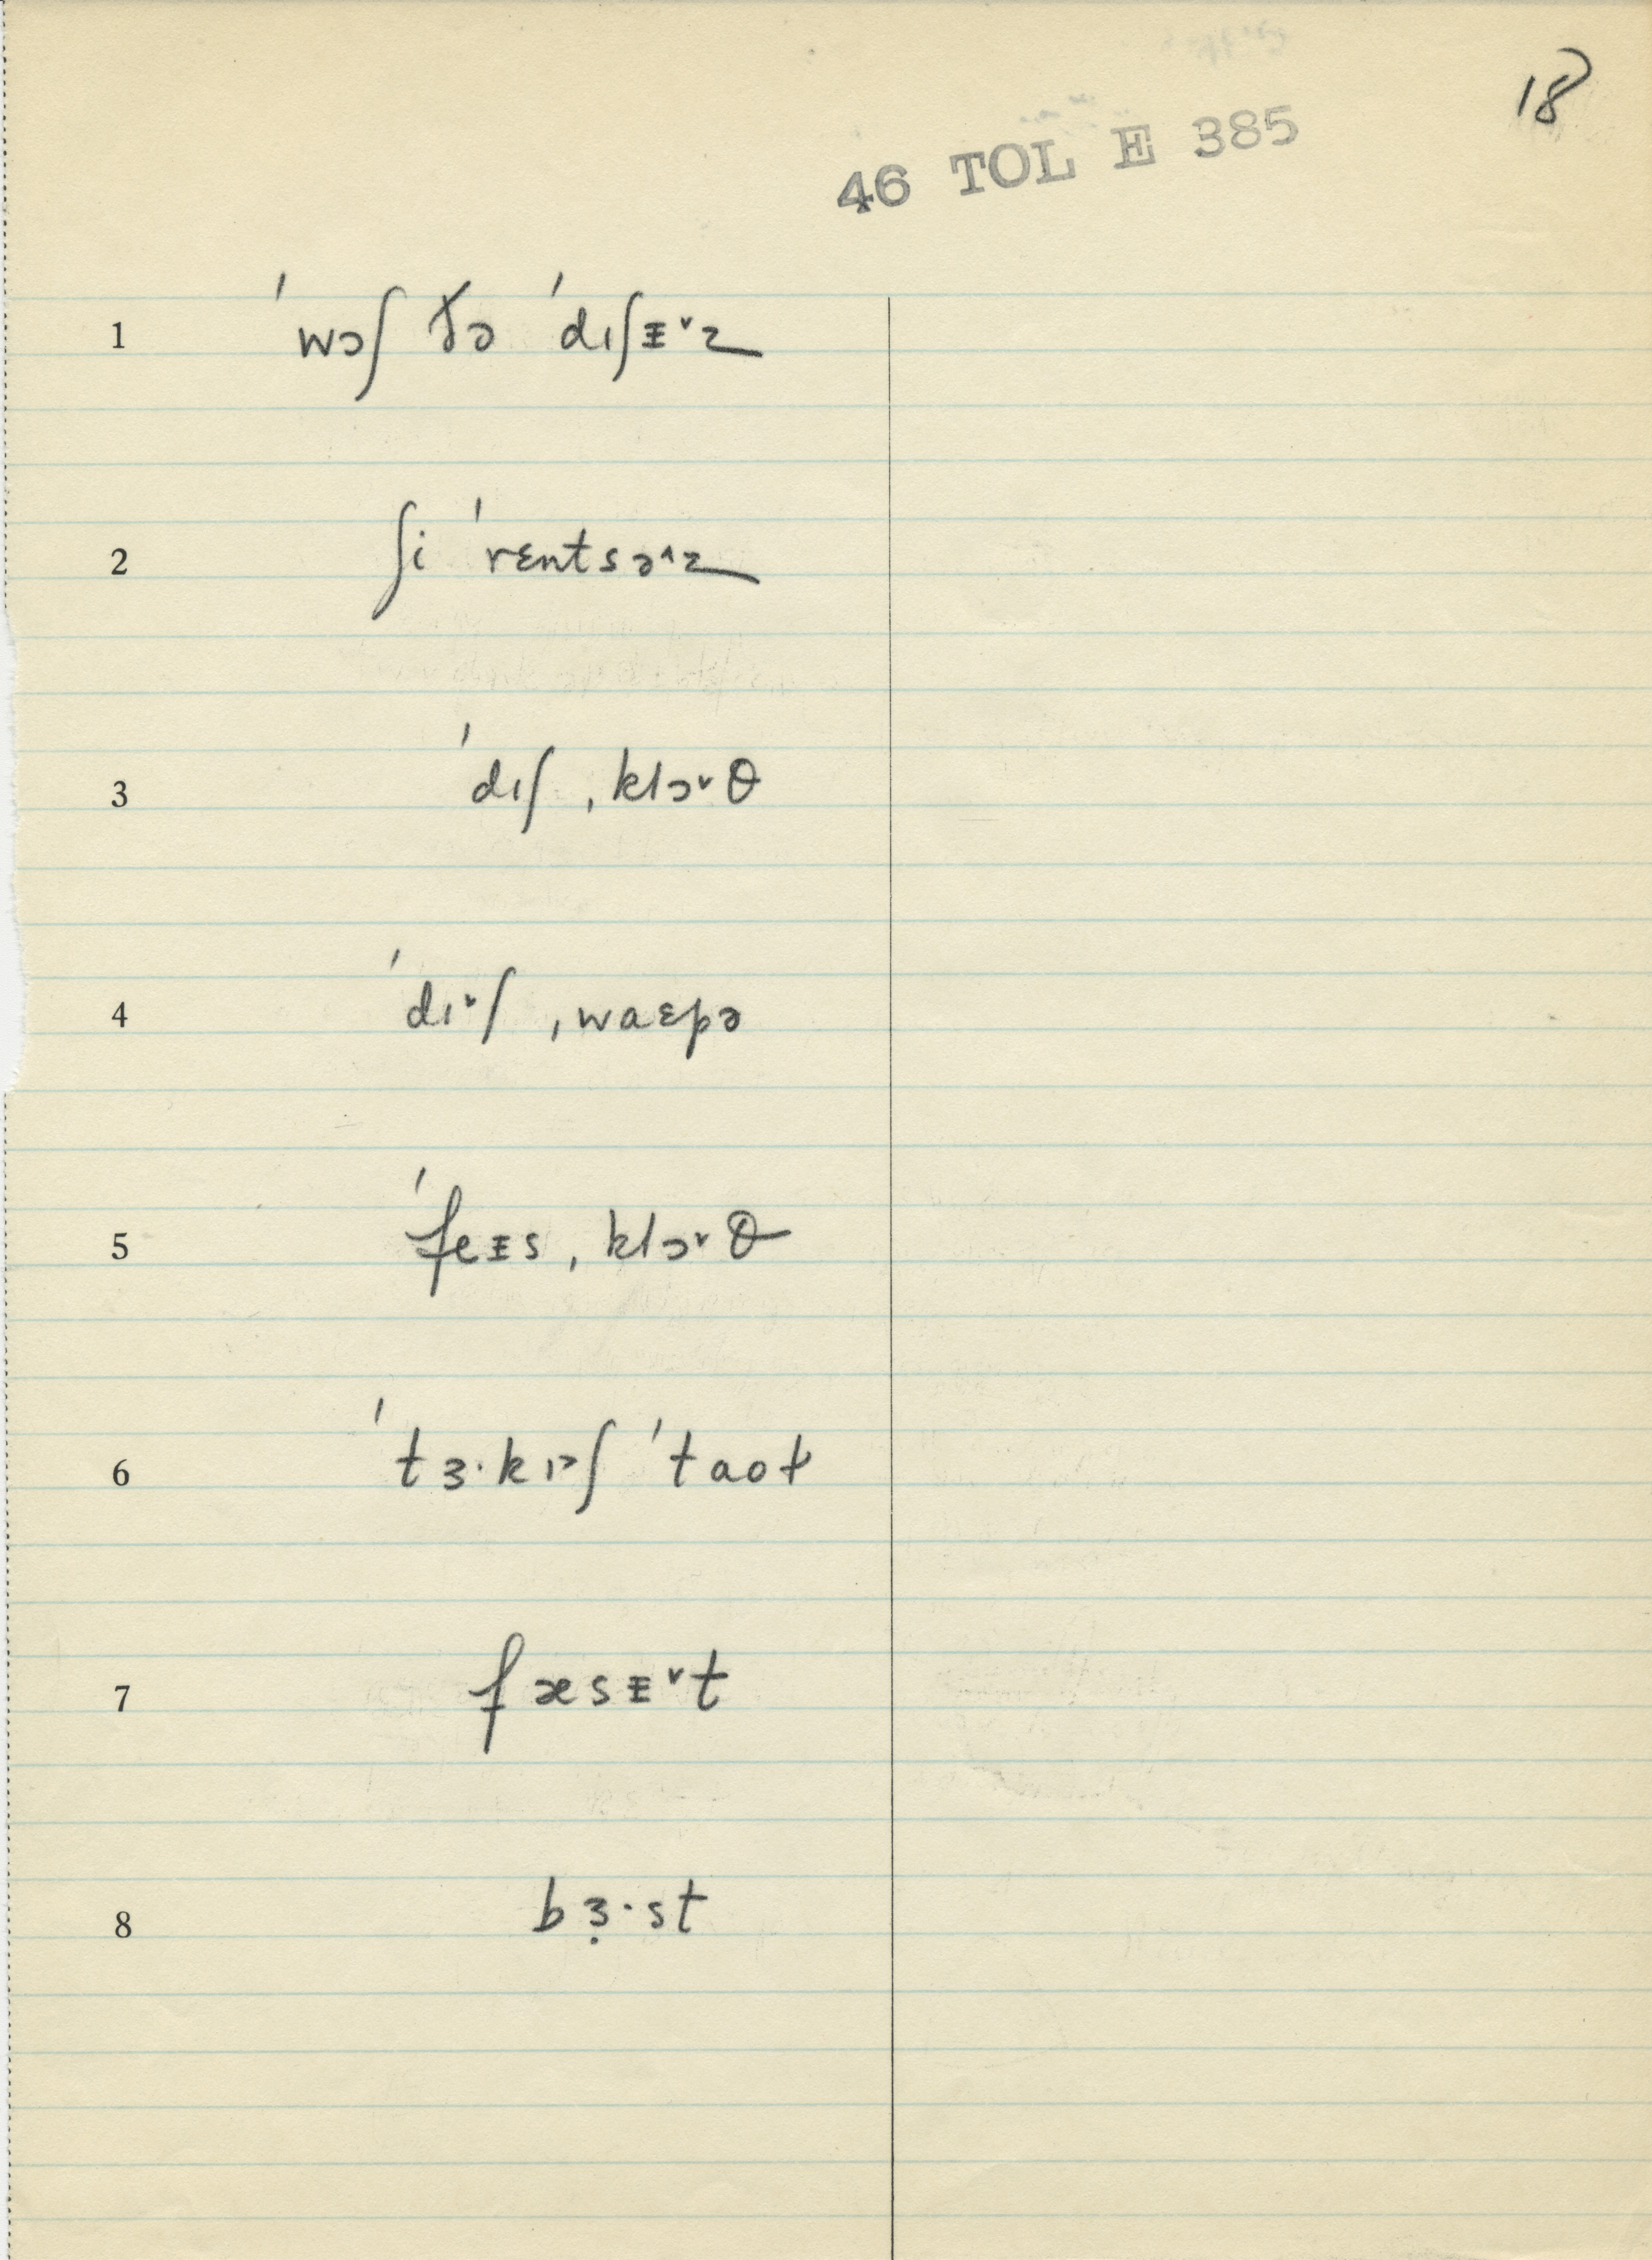 18
46 TOL E 385
1 ˈwɔʃ ðə ˈdɪʃᵻ˅z
2 ʃi ˈrɛntsə˄z
3 ˈdɪʃˌklɔ˅θ
4 ˈdɪ˅ʃˌwaɛpə
5 ˈfeᵻsˌklɔ˅θ
6 ˈtɜ·kɪ˃ʃ ˈtaoɫ
7 fæsᵻ˅t
8 bɜ̣·st